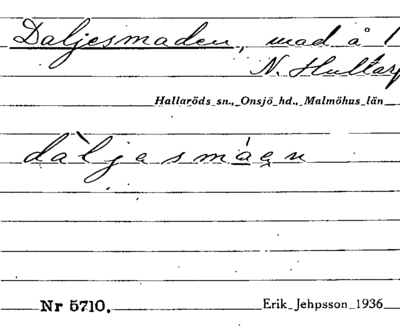 Daljesmaden, mad å 1
N. Hultarp
Hallaröds sn., Onsjö hd., Malmöhus län
dàljasmáen
Nr 5710.
Erik Jehpsson 1936